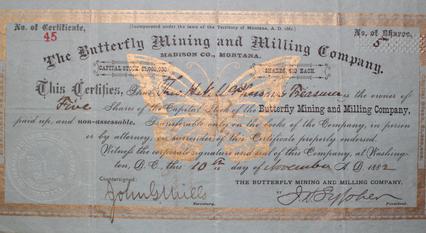 No. of Certificate,
(Incorporated under the laws of the Territory of Montana, A. D. 1881.)
No. of Shares,
45
5
The Butterfly Mining and Milling Company,
MADISON CO., MONTANA.
CAPITAL STOCK
SHARES, $10 EACH.
This Certifies, That Treasurer is the owner of
Five Shares of the Capital Stock of the Butterfly Mining and Milling Company,
paid up, and non-assessable. Transferable only on the books of the Company, in person
or by attorney, on surrender of this Certificate properly endorsed.
Witness the corporate signature and seal of this Company, at Washing-
ton, D. C., this 10th day of November A. D. 1882
Countersigned:
THE BUTTERFLY MINING AND MILLING COMPANY,
John G Mills
BY
Secretary.
President.